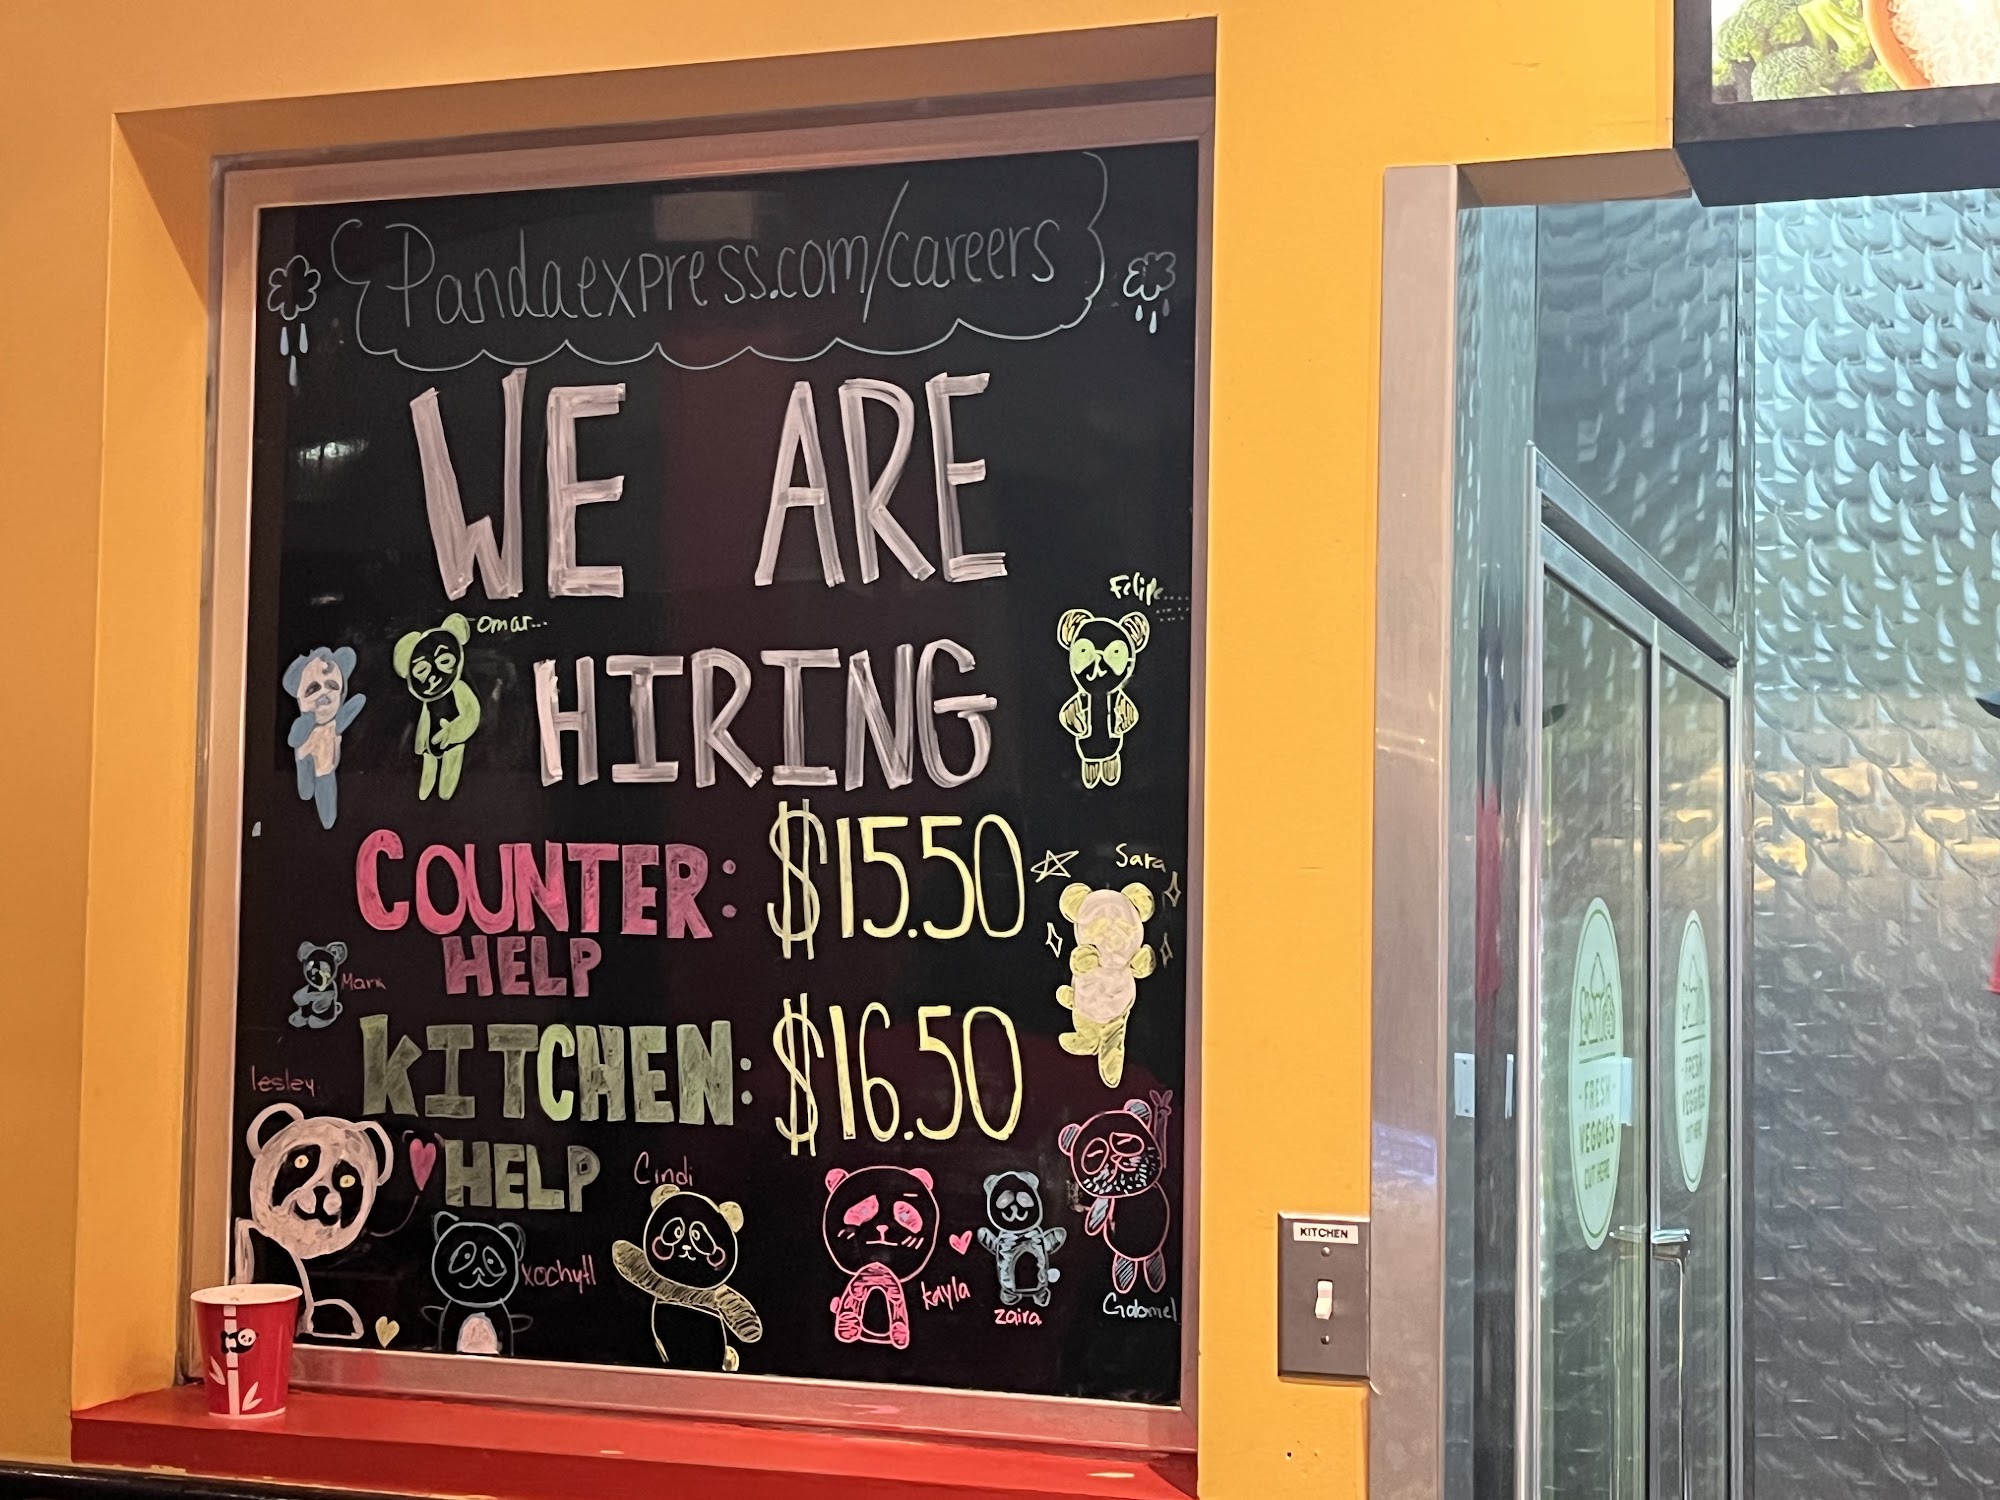 Pandaexpress.com/careers
WE ARE
HIRING
Omar...
Felipe....
COUNTER: $15.50
HELP
Sara
Mark
KITCHEN: $16.50
HELP
lesley
Cindi
xochytl
kayla
zaira
Gabriel
KITCHEN
FRESH
VEGGIES
CUT HERE
FRESH
VEGGIES
CUT HERE